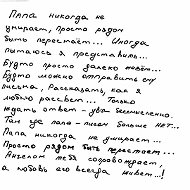 Папа никогда не
умирает, просто рядом
быть перестаёт... Иногда
пытаюсь я представить...
Будто просто далеко живём...
Будто можно отправить ему
письма, Рассказать, как я
люблю рассвет... Только
ждать ответ - увы бессмысленно.
Там где папа - писем больше НЕТ...
Папа никогда не умирает...
Просто рядом быть перестает...
Ангелом тебя сопровождает,
а любовь его всегда живет...!